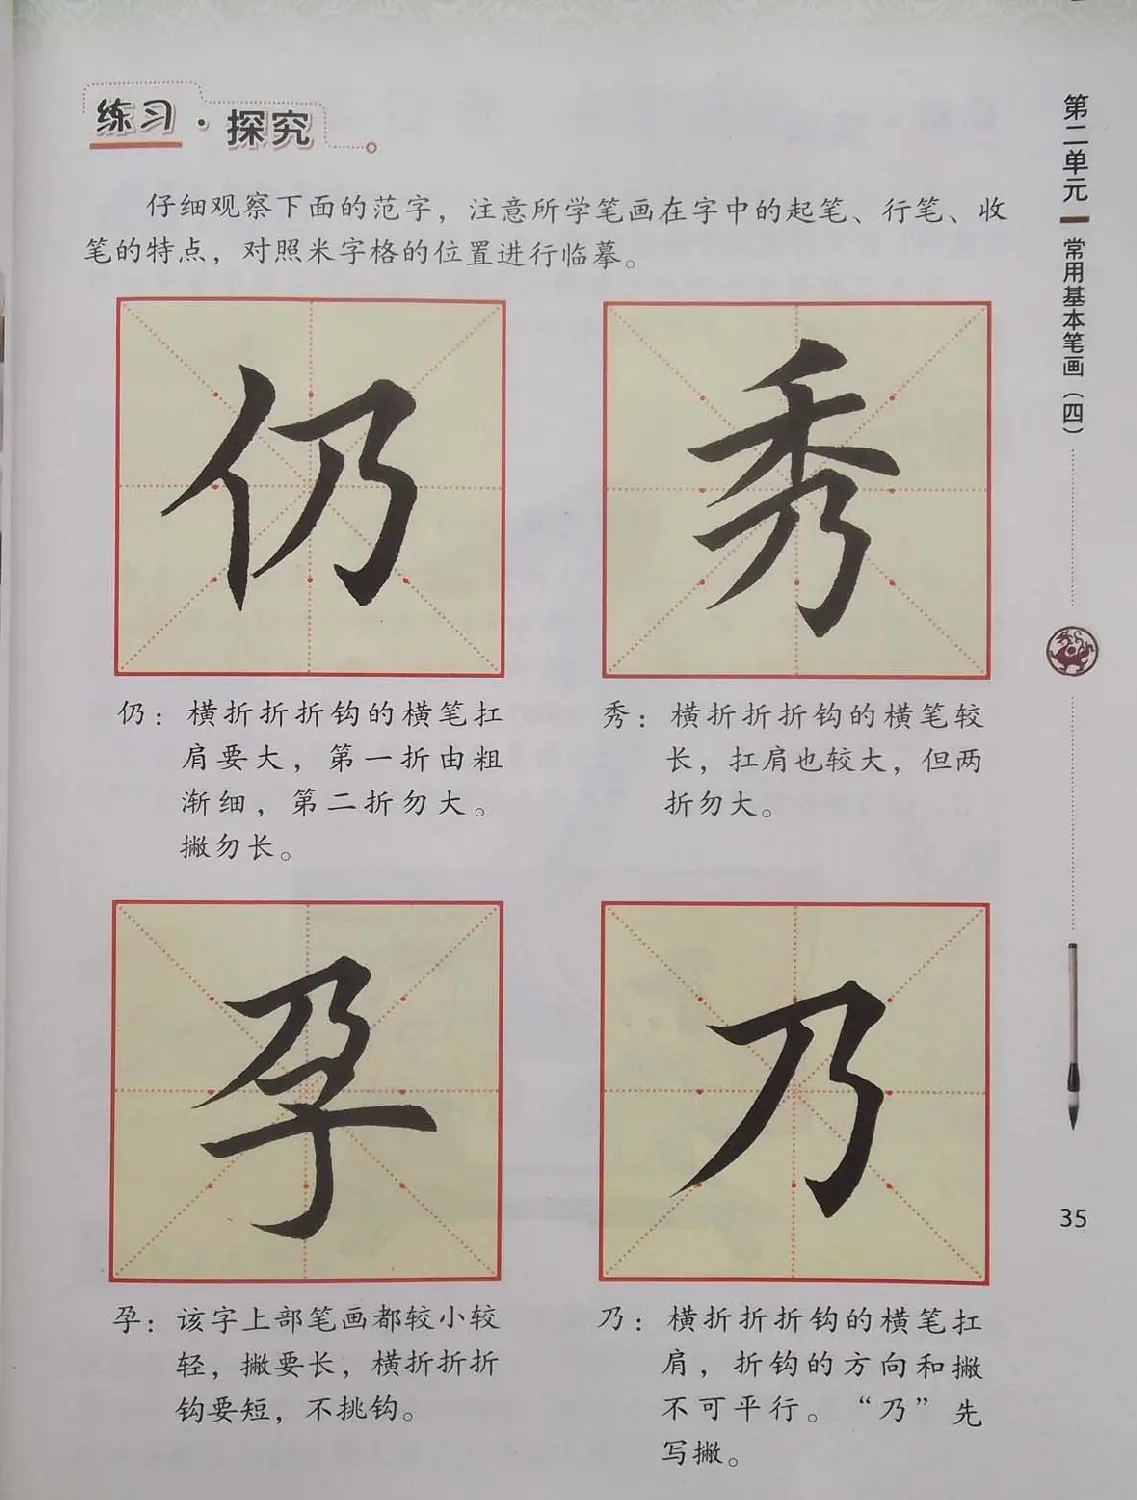 练习·探究
仔细观察下面的范字，注意所学笔画在字中的起笔、行笔、收
笔的特点，对照米字格的位置进行临摹。
仍
秀
仍：横折折折钩的横笔扛
肩要大，第一折由粗
渐细，第二折勿大。
撇勿长。
秀：横折折折钩的横笔较
长，扛肩也较大，但两
折勿大。
孕
乃
孕：该字上部笔画都较小较
轻，撇要长，横折折折
钩要短，不挑钩。
乃：横折折折钩的横笔扛
肩，折钩的方向和撇
不可平行。“乃”先
写撇。
第二单元
常用基本笔画（四）
35